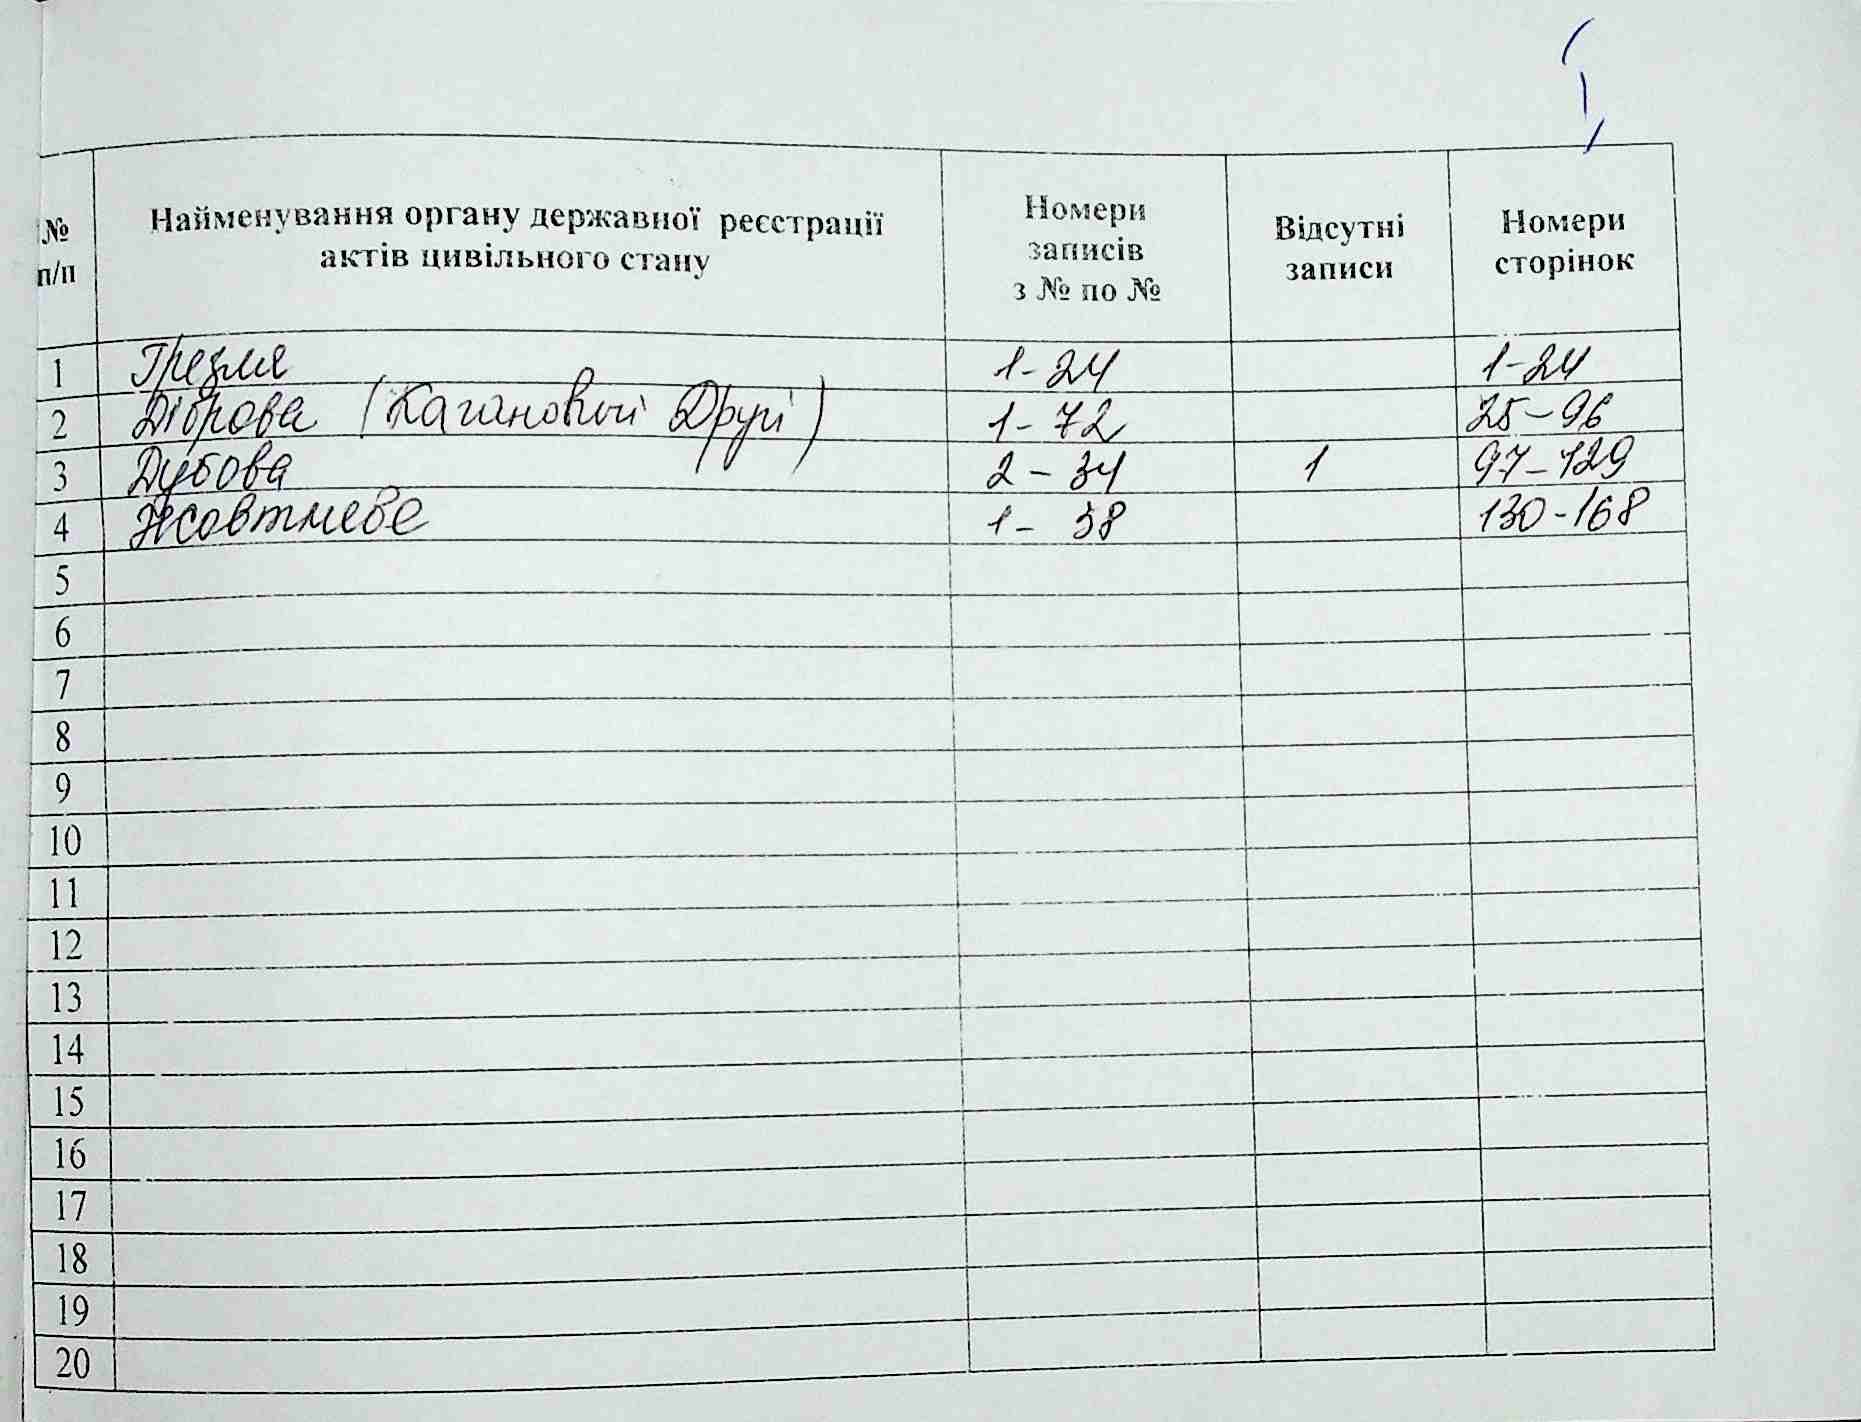 № п/п Найменування органу державної реєстрації актів цивільного стану Номери записів з № по № Відсутні записи Номери сторінок
1 Грезля 1-24 1-24
2 Діброва (Кагановичі Другі) 1-72 25-96
3 Дубова 2-34 1 97-129
4 Жовтневе 1-38 130-168
5
6
7
8
9
10
11
12
13
14
15
16
17
18
19
20